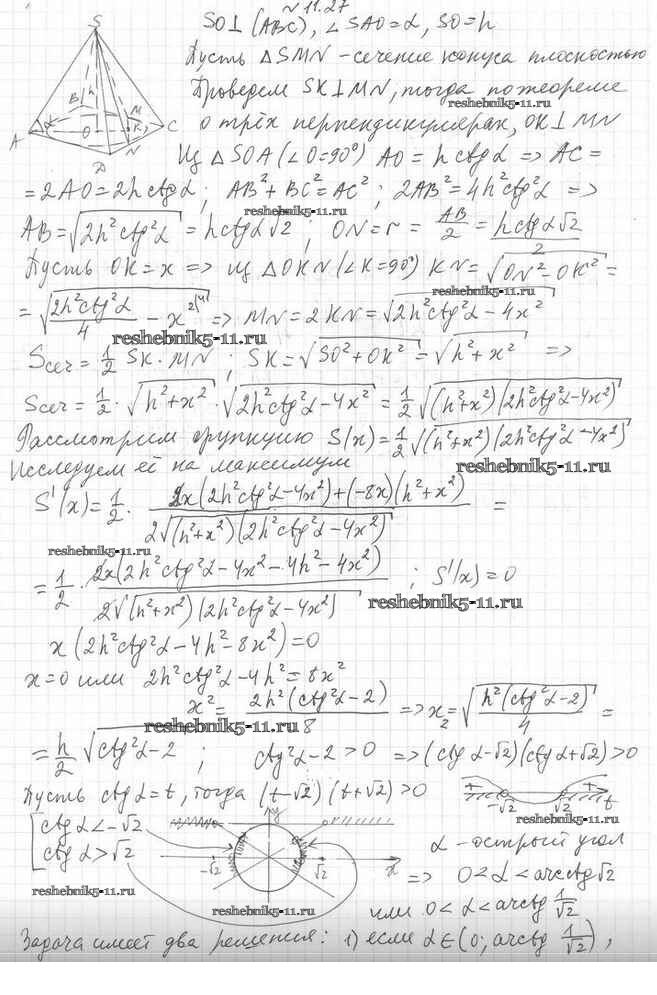 № 11.27
SO⊥(ABC), ∠SAO=α, SO=h
Пусть △SMN – сечение конуса плоскостью
Проведем SK⊥MN, тогда по теореме
reshebnik5-11.ru
о трёх перпендикулярах, OK⊥MN
Из △SOA (∠O=90°) AO = h ctg α => AC =
= 2AO = 2h ctg α; AB²+BC²=AC²; 2AB²=4h²ctg²α =>
reshebnik5-11.ru
AB=√(2h²ctg²α) = h ctg α√2; ON=r= AB/2 = h ctg α√2/2
Пусть OK=x => из △OKN (∠K=90°) KN=√(ON²-OK²) =
= √(2h²ctg²α/4 - x²) => MN=2KN=√(2h²ctg²α-4x²)
reshebnik5-11.ru
reshebnik5-11.ru
Sсеч = 1/2 SK·MN; SK=√(SO²+OK²)=√(h²+x²) =>
Sсеч = 1/2·√(h²+x²)·√(2h²ctg²α-4x²) = 1/2 √((h²+x²)(2h²ctg²α-4x²))
Рассмотрим функцию S(x)= 1/2 √((h²+x²)(2h²ctg²α-4x²))
Исследуем её на максимум
reshebnik5-11.ru
S'(x)= 1/2 · (2x(2h²ctg²α-4x²)+(-8x)(h²+x²))/(2√((h²+x²)(2h²ctg²α-4x²))) =
reshebnik5-11.ru
= 1/2 · (2x(2h²ctg²α-4x²-4h²-4x²))/(2√((h²+x²)(2h²ctg²α-4x²))); S'(x)=0
reshebnik5-11.ru
x(2h²ctg²α-4h²-8x²)=0
x=0 или 2h²ctg²α-4h²=8x²
x²= 2h²(ctg²α-2)/8 => x₂=√(h²(ctg²α-2)/4) =
reshebnik5-11.ru
= h/2 √(ctg²α-2); ctg²α-2>0 => (ctg α-√2)(ctg α+√2)>0
Пусть ctg α=t, тогда (t-√2)(t+√2)>0
+ - + -√2 √2 t
[ctg α<-√2
ctg α>√2
y
-√2 √2 x
α – острый угол
=> 0<α<arcctg√2
reshebnik5-11.ru
reshebnik5-11.ru
или 0<α<arctg 1/√2
Задача имеет два решения: 1) если α∈(0; arctg 1/√2),
S
h
α
B
M
A
O
K
C
N
D